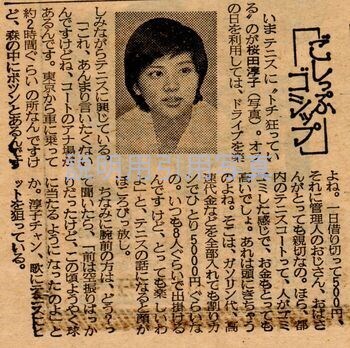 ごしっぷ
ゴシップ
いまテニスに〝トチ狂ってい
る〟のが桜田淳子(写真)。オフ
の日を利用しては、ドライブを楽
しみながらテニスに興じている。
「これ、あんまり言いたくない
んですけどね、コートのアナ場が
あるんです。東京から車に乗って
約2時間ぐらいの所なんですけ
ど、森の中にポツンとあるんです
よね。一日借り切って500円。
それに管理人のおじさん、おばさ
んがとっても親切なの。ほら、都
内のテニスコートって、人がゴミ
ゴミした感じで、お金もとっても
高いでしょ。あれは頭にきちゃう
わよね。そこは、ガソリン代、高
速代金などを全部入れても割りカ
ンでひとり5000円ぐらいな
の。いつも8人ぐらいで出掛ける
んですけど、とっても楽しいわ
よ」と、テニスの話になると顔が
ほころびっ放し。
ちなみに腕前の方は、どうかっ
て聞いたら、「前は空振りばっか
りだったけど、この頃ようやく球
に当たるようになったのよ」と
か。淳子チャン、歌にテニスにヒ
ットを狙っている。